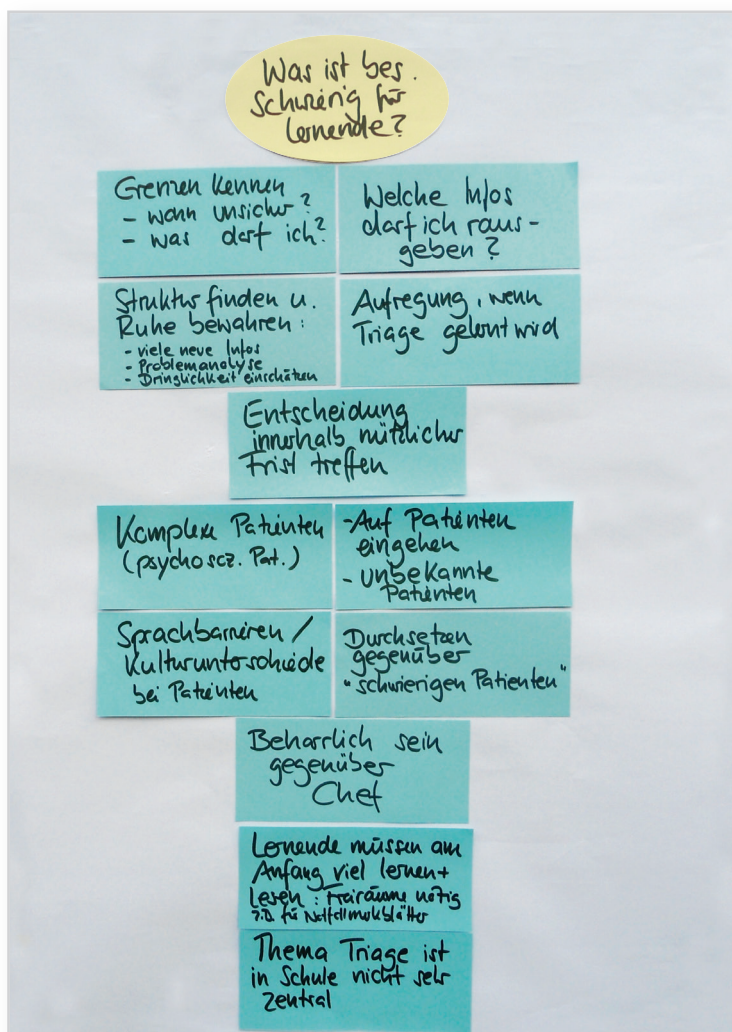 Was ist bes.
schwierig für
Lernende?
Grenzen kennen
- wann unsicher?
- was darf ich?
Welche Infos
darf ich raus-
geben?
Struktur finden u.
Ruhe bewahren:
- viele neue Infos
- Problemanalyse
- Dringlichkeit einschätzen
Aufregung, wenn
Triage gelernt wird
Entscheidung
innerhalb nützlicher
Frist treffen
Komplexe Patienten
(psychosoz. Pat.)
- Auf Patienten
eingehen
- unbekannte
Patienten
Sprachbarrieren /
Kulturunterschiede
bei Patienten
Durchsetzen
gegenüber
"schwierigen Patienten"
Beharrlich sein
gegenüber
Chef
Lernende müssen am
Anfang viel lernen +
lesen: Freiräume nötig
z.B. für Notfallmerkblätter
Thema Triage ist
in Schule nicht sehr
zentral